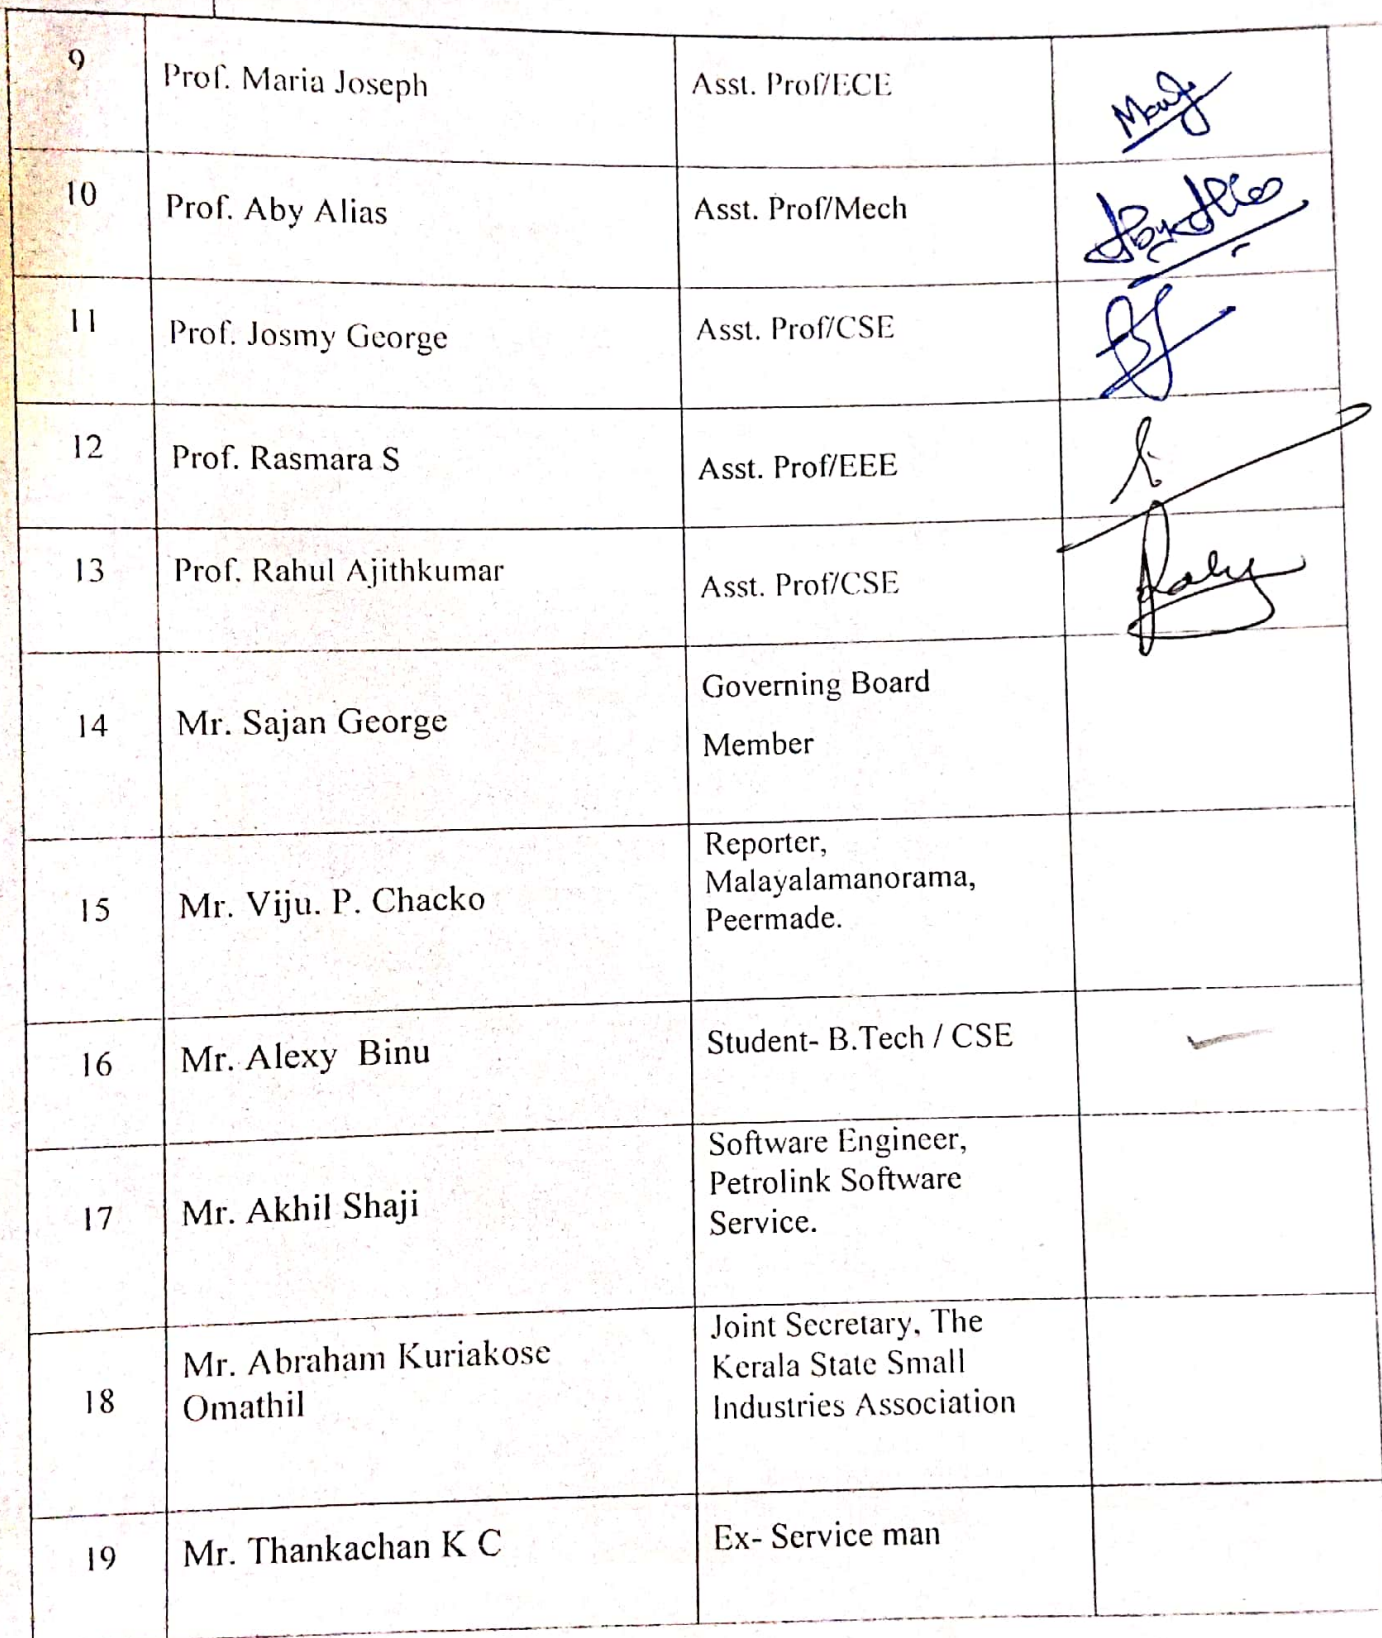 9 Prof. Maria Joseph Asst. Prof/ECE
10 Prof. Aby Alias Asst. Prof/Mech
11 Prof. Josmy George Asst. Prof/CSE
12 Prof. Rasmara S Asst. Prof/EEE
13 Prof. Rahul Ajithkumar Asst. Prof/CSE
14 Mr. Sajan George Governing Board
Member
15 Mr. Viju. P. Chacko Reporter,
Malayalamanorama,
Peermade.
16 Mr. Alexy Binu Student- B.Tech / CSE
17 Mr. Akhil Shaji Software Engineer,
Petrolink Software
Service.
18 Mr. Abraham Kuriakose
Omathil
Joint Secretary, The
Kerala State Small
Industries Association
19 Mr. Thankachan K C Ex- Service man